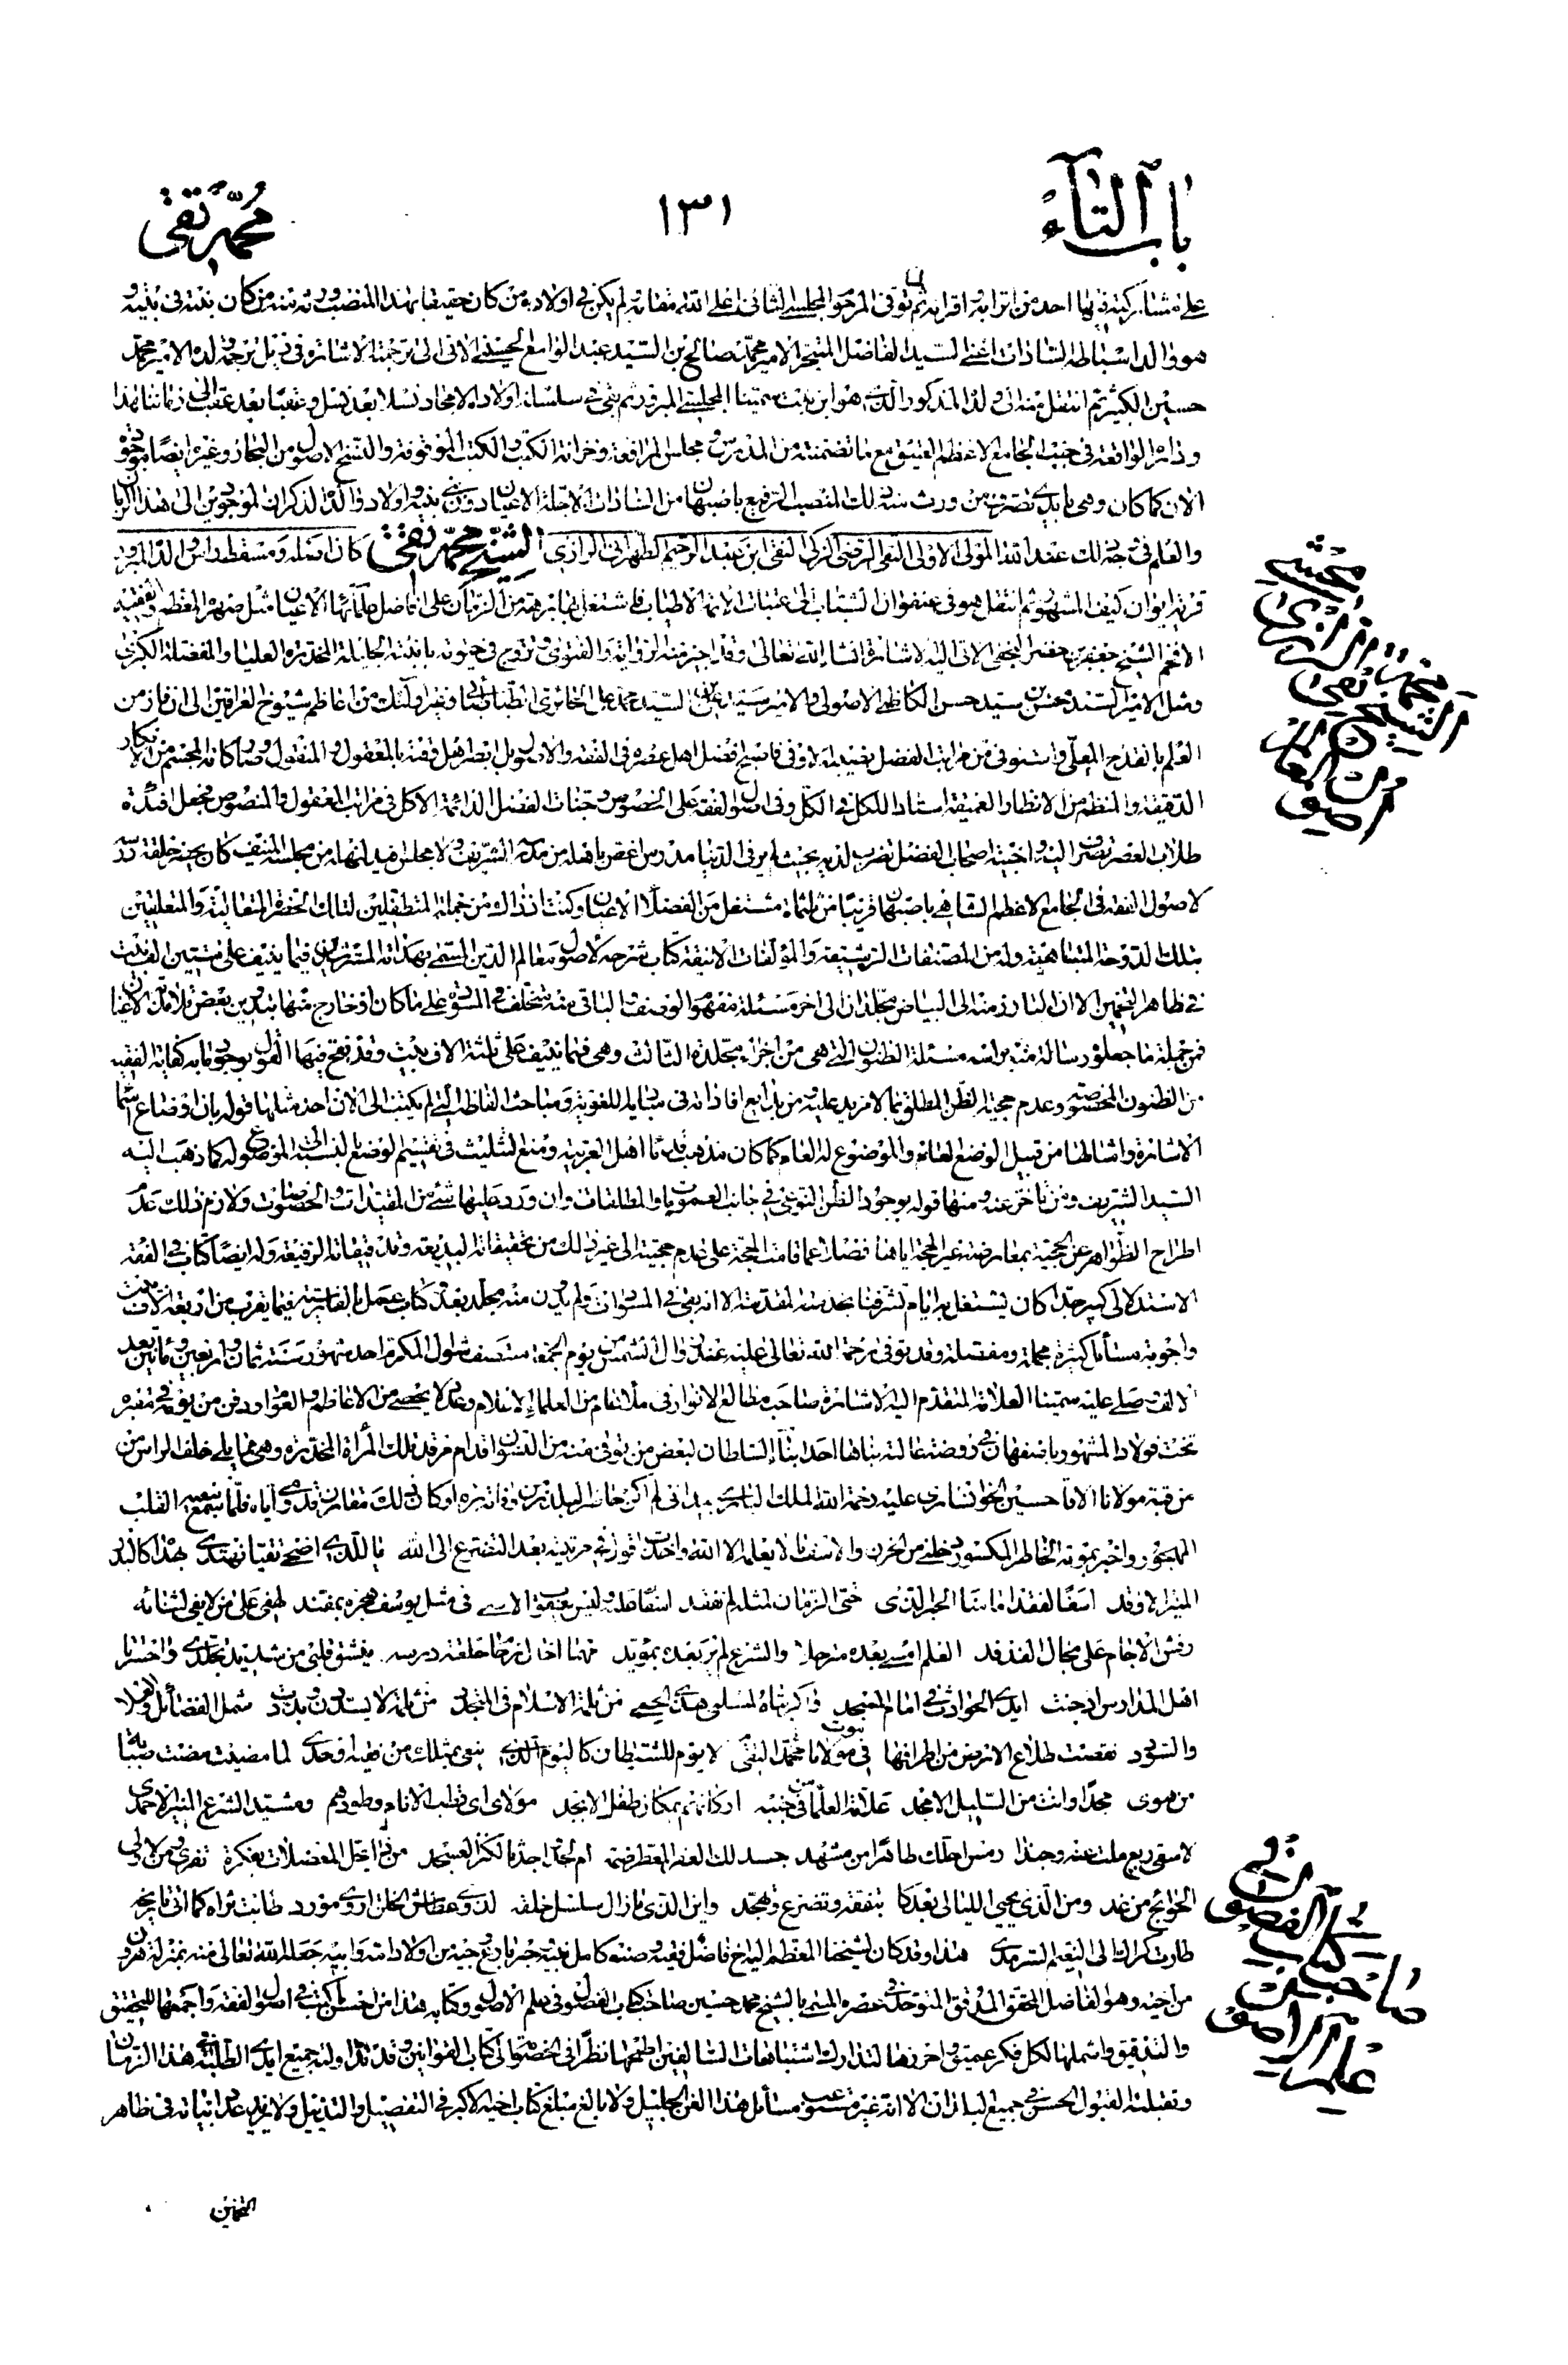 باب التاء
١٣١
محمد تقى
على مشاركته فيها احد من اترابه واقرانه ثم توفى المرحوم المجلسى الثانى اعلى الله مقامه ولم يكن فى اولاده من كان حقيقا بهذا المنصب ورتبته من كان بنته فى بيته و
هو والد اسباطه السادات اعنى السيد الفاضل المتبحر الامير محمد صالح بن السيد عبد الواسع الحسينى الاتى الى ترجمته الاشارة فى ذيل ترجمة ولده الامير محمد
حسين الكبير ثم انتقل منه الى ولده المذكور الذى هو ابن بنت سمينا المجلسى المبرور ثم بقى فى سلسلة اولاده الامجاد نسلا بعد نسل وعقبا بعد عقب الى زماننا هذا
وداره الواقعة فى جنب الجامع الاعظم العتيق مع ما تضمنته من المدرس ومجلس المرافعة وخزانة الكتب والكتب الموقوفة والنسخ الاصول من البحار وغيره ايضا موجودة
الان كما كان وهى بايدى تصرف من ورث منه ذلك المنصب الرفيع باصبهان من السادات الاجلة الاعيان وبنى بنيه واولاد والده الذكران الموجودين الى هذا الزمان
والعلم فى جميع ذلك عند الله المولى الاولى التقى المرضى الزكى النقى ابن عبد الرحيم الطهرانى الرازى الشيخ محمد تقى كان اصله ومسقط راس والده المبرور
قرية ايوان كيف المشهور ثم انتقل هو فى عنفوان الشباب الى عتبات الائمة الاطياب فاشتغل بها برهة من الزمان على افاضل علمائها الاعيان مثل صهره المعظم والفقيه
الافخم الشيخ جعفر بن خضر النجفى الاتى اليه الاشارة انشاء الله تعالى وقد اجيز منه الرواية والفتوى وتزوج فى حيوته بابنته الجليلة المخدرة العليا والمفضلة الكبرى
ومثل الامير السيد محسن بن سيد حسن الكاظمى الاصولى والامير سيد على بن السيد محمد على الحائرى الطباطبائى وغير اولئك من اعاظم شيوخ العراقين الى ان فاز من
العلم بالقدح المعلى واستوفى من مراتب الفضل نصيبه الاوفى فاصبح افضل اهل عصره فى الفقه والاصول بل ابصر اهل وقته بالمعقول والمنقول وصار كانه المجسم من الافكار
الدقيقة والمنظم من الانظار العميقة استادا للكل فى الكل وفى اصول الفقه على الخصوص وجنات الفضل الدائمة الاكل فى مراتب المعقول والمنصوص فجعل افئدة
طلاب العصر تصرف اليه واخبية اصحاب الفضل تضرب لديه بحيث لم ير فى الدنيا مدرس اغص باهله من مدرسه الشريف ولا مجلس افيد لتمامه من مجلسه المنيف كان يحضر حلقة درسه
لاصول الفقه فى الجامع الاعظم الشاهى باصبهان قريبا من ثلثمأة مشتغل من الفضلاء الاعيان وكنت انذاك من جملة المتطفلين لتلك الحضرة المتعالية والمتعلقين
بتلك الدوحة المتباهية وله من المصنفات الرشيقة والمؤلفات الانيقة كتاب شرحه لاصول معالم الدين المسمى بهداية المسترشدين فيما ينيف على ستين الف بيت
فى ظاهر التخمين الا ان البارز منه الى البياض مجلدان الى اخر مسئلة مفهوم الوصف والباقى منه متخلف فى المسودة على ما كان او خارج منها بتدوين بعض تلامذته الاعيان
فمن جملة ما جعلوه رسالة منه براسه مسئلة الظنون التى هى من اجزاء مجلدة الثالث وهى فيما ينيف على ثلثة الاف بيت وقد نقح فيها القول بوجود ما به كفاية الفقيه
من الظنون المخصوصة وعدم حجية الظن المطلق بما لا مزيد عليه ومن بدايع افاداته فى مباديه اللغوية ومباحث الفاظه التى لم يكتب الى الان احد مثلها قوله بان وضع اسماء
الاشارة وامثالها من قبيل الوضع العام والموضوع له العام كما كان مذهب قدماء اهل العربية ومنع التثليث فى تقسيم الوضع بالنسبة الى الموضوع له كما ذهب اليه
السيد الشريف ومن تاخر عنه ومنها قوله بوجود الظن النوعى فى جانب العمومات والمطلقات وان ورد عليها شئ من المقيدات والخصوصات ولازم ذلك عدم
اطراح الظواهر عن الحجية بمعارضة غير الحجة اياها فضلا عما قامت الحجة على عدم حجيته الى غير ذلك من تحقيقاته البديعة وتدقيقاته الرفيعة وله ايضا كتاب فى الفقه
الاستدلالى كبير جدا كان يشتغل به ايام تشرفنا بخدمته المقدسة الا انه بقى فى المسودات ولم يدون منه مجلد بعد وكتاب عمل بالفارسية فيما يقرب من اربعة الاف بيت
واجوبة مسائل كثيرة مجملة ومفصلة وقد توفى رحمة الله تعالى عليه عند زوال الشمس من يوم الجمعة منتصف شوال المكرم احد شهور سنة ثمان واربعين ومأتين بعد
الالف وصلى عليه سمينا العلامة المتقدم اليه الاشارة صاحب مطالع الانوار فى ملا عام من العلماء الاعلام وعدد لا يحصى من الاعاظم والعوام ودفن من يومه فى مقبرة
تخت فولاد المشهور باصفهان فى روضة عالية بناها احد ابناء السلطان لبعض من توفى منه من النسوان اقدام مرقد تلك المرأة المخدرة وهى مما يلى خلف الراس من
من قبة مولانا الاقا حسين الخوانسارى عليه رحمة الله الملك البارى
المهجور واخبر بموته الخاطر المكسور دخلنى من الحزن والاسف ما لا يعلمه الا الله واخذت اقول فى مرثيته بعد التضرع الى الله يا للذى اضحى تقيا نهتدى بهداه كالبدر
المنير الاوقد اسفا لفقد امامنا الحبر الذى حتى الزمان لمثله لم نفقد اسفا عليه وليس يعقوب الاسى فى مثل يوسف هجره بمفند لهفى على من لا يفى لثنائه
رقش الاجام على مجال الفدفد العلم امسى بعده مترحلا والشرع لم ير بعده بمؤيد مهما اخال زحام حلقة درسه ينشق قلبى من شديد تجلدى واحسرتا
اهل المدارس اذ جنت ايدى الحوادث فى امام المسجد واكربتاه لمسلمى هذى الحمى من ثلمة الاسلام فى المتجدد من ثلمة لا يستد ون بددت شمل الفضائل والعلا
والسؤدد نقصت طلاع الارض من اطرافها فى موت مولانا محمد التقى لا يوم للشيطان كاليوم الذى ينعى بمثلك من فقيه اوحد لما مضيت مضت صبابة
من هوى مجدا وانت من السليل الامجد علامة العلماء من فى جنبه اركانهم بمكان طفل الابجد مولاى اى قطب الانام وطودهم ومشيد الشرع المنير الاحمدى
لا سقى ربع ملت عنه وجندا رمس احلك طائرا من مشهد جسد لك العفر المعطر ضمه ام لحد اجداث لكنز العسجد من ذا يحل المعضلات بفكرة تفرى ومن لاولى
الحوائج من غد ومن الذى يحيى الليالى بعدكا بتفقه وتضرع وتهجد واين الذى ما زال سلسل خلقه لذوى عطاش الخلق اروى مورد طابت ثراه كما اتى تاريخه
طارت كراك الى النعيم السرمدى هذا وقد كان لشيخنا المعظم اليه اخ فاضل فقيه وصنو كامل نبيه حبر بارع وجيه من اولاد امه وابيه جعله الله تعالى منه بمنزلة هرون
من اخيه وهو الفاضل المحقق المدقق المتوحد فى عصره المسمى بالشيخ محمد حسين صاحب كتاب الفصول فى علم الاصول وكتابه هذا من احسن ما كتب فى اصول الفقه واجمعها للتحقيق
والتدقيق واشملها لكل فكر عميق واحرزها لتدارك اشتباهات السالفين اطمحها نظرا فى خصوماته الى كتاب القوانين وقد تداولته جميع ايدى الطلبة فى هذا الزمان
وتقبلته القبول الحسن فى جميع البلدان الا انه غير مستوعب مسائل هذا الفن الجليل ولا بالغ مبلغ كتاب اخيه الاكبر فى التفصيل والتذييل ولا يزيد عدد ابياته فى ظاهر
التخمين
محشى
الشيخ
صاحب
كتاب الفصول
عليه الرحمة